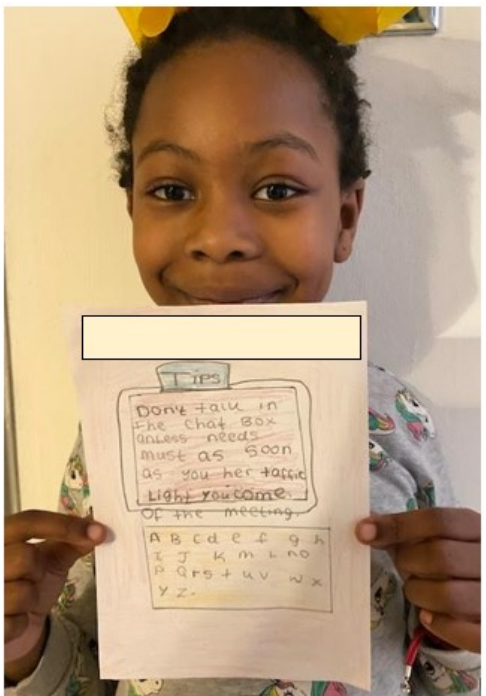 Tips
Don't talk in
the chat Box
unless needs
must as soon
as you her taffic
Light you come
Of the meeting.
A B C d e f g h
I J K m L n o
P Q r s t u v w x
y z.